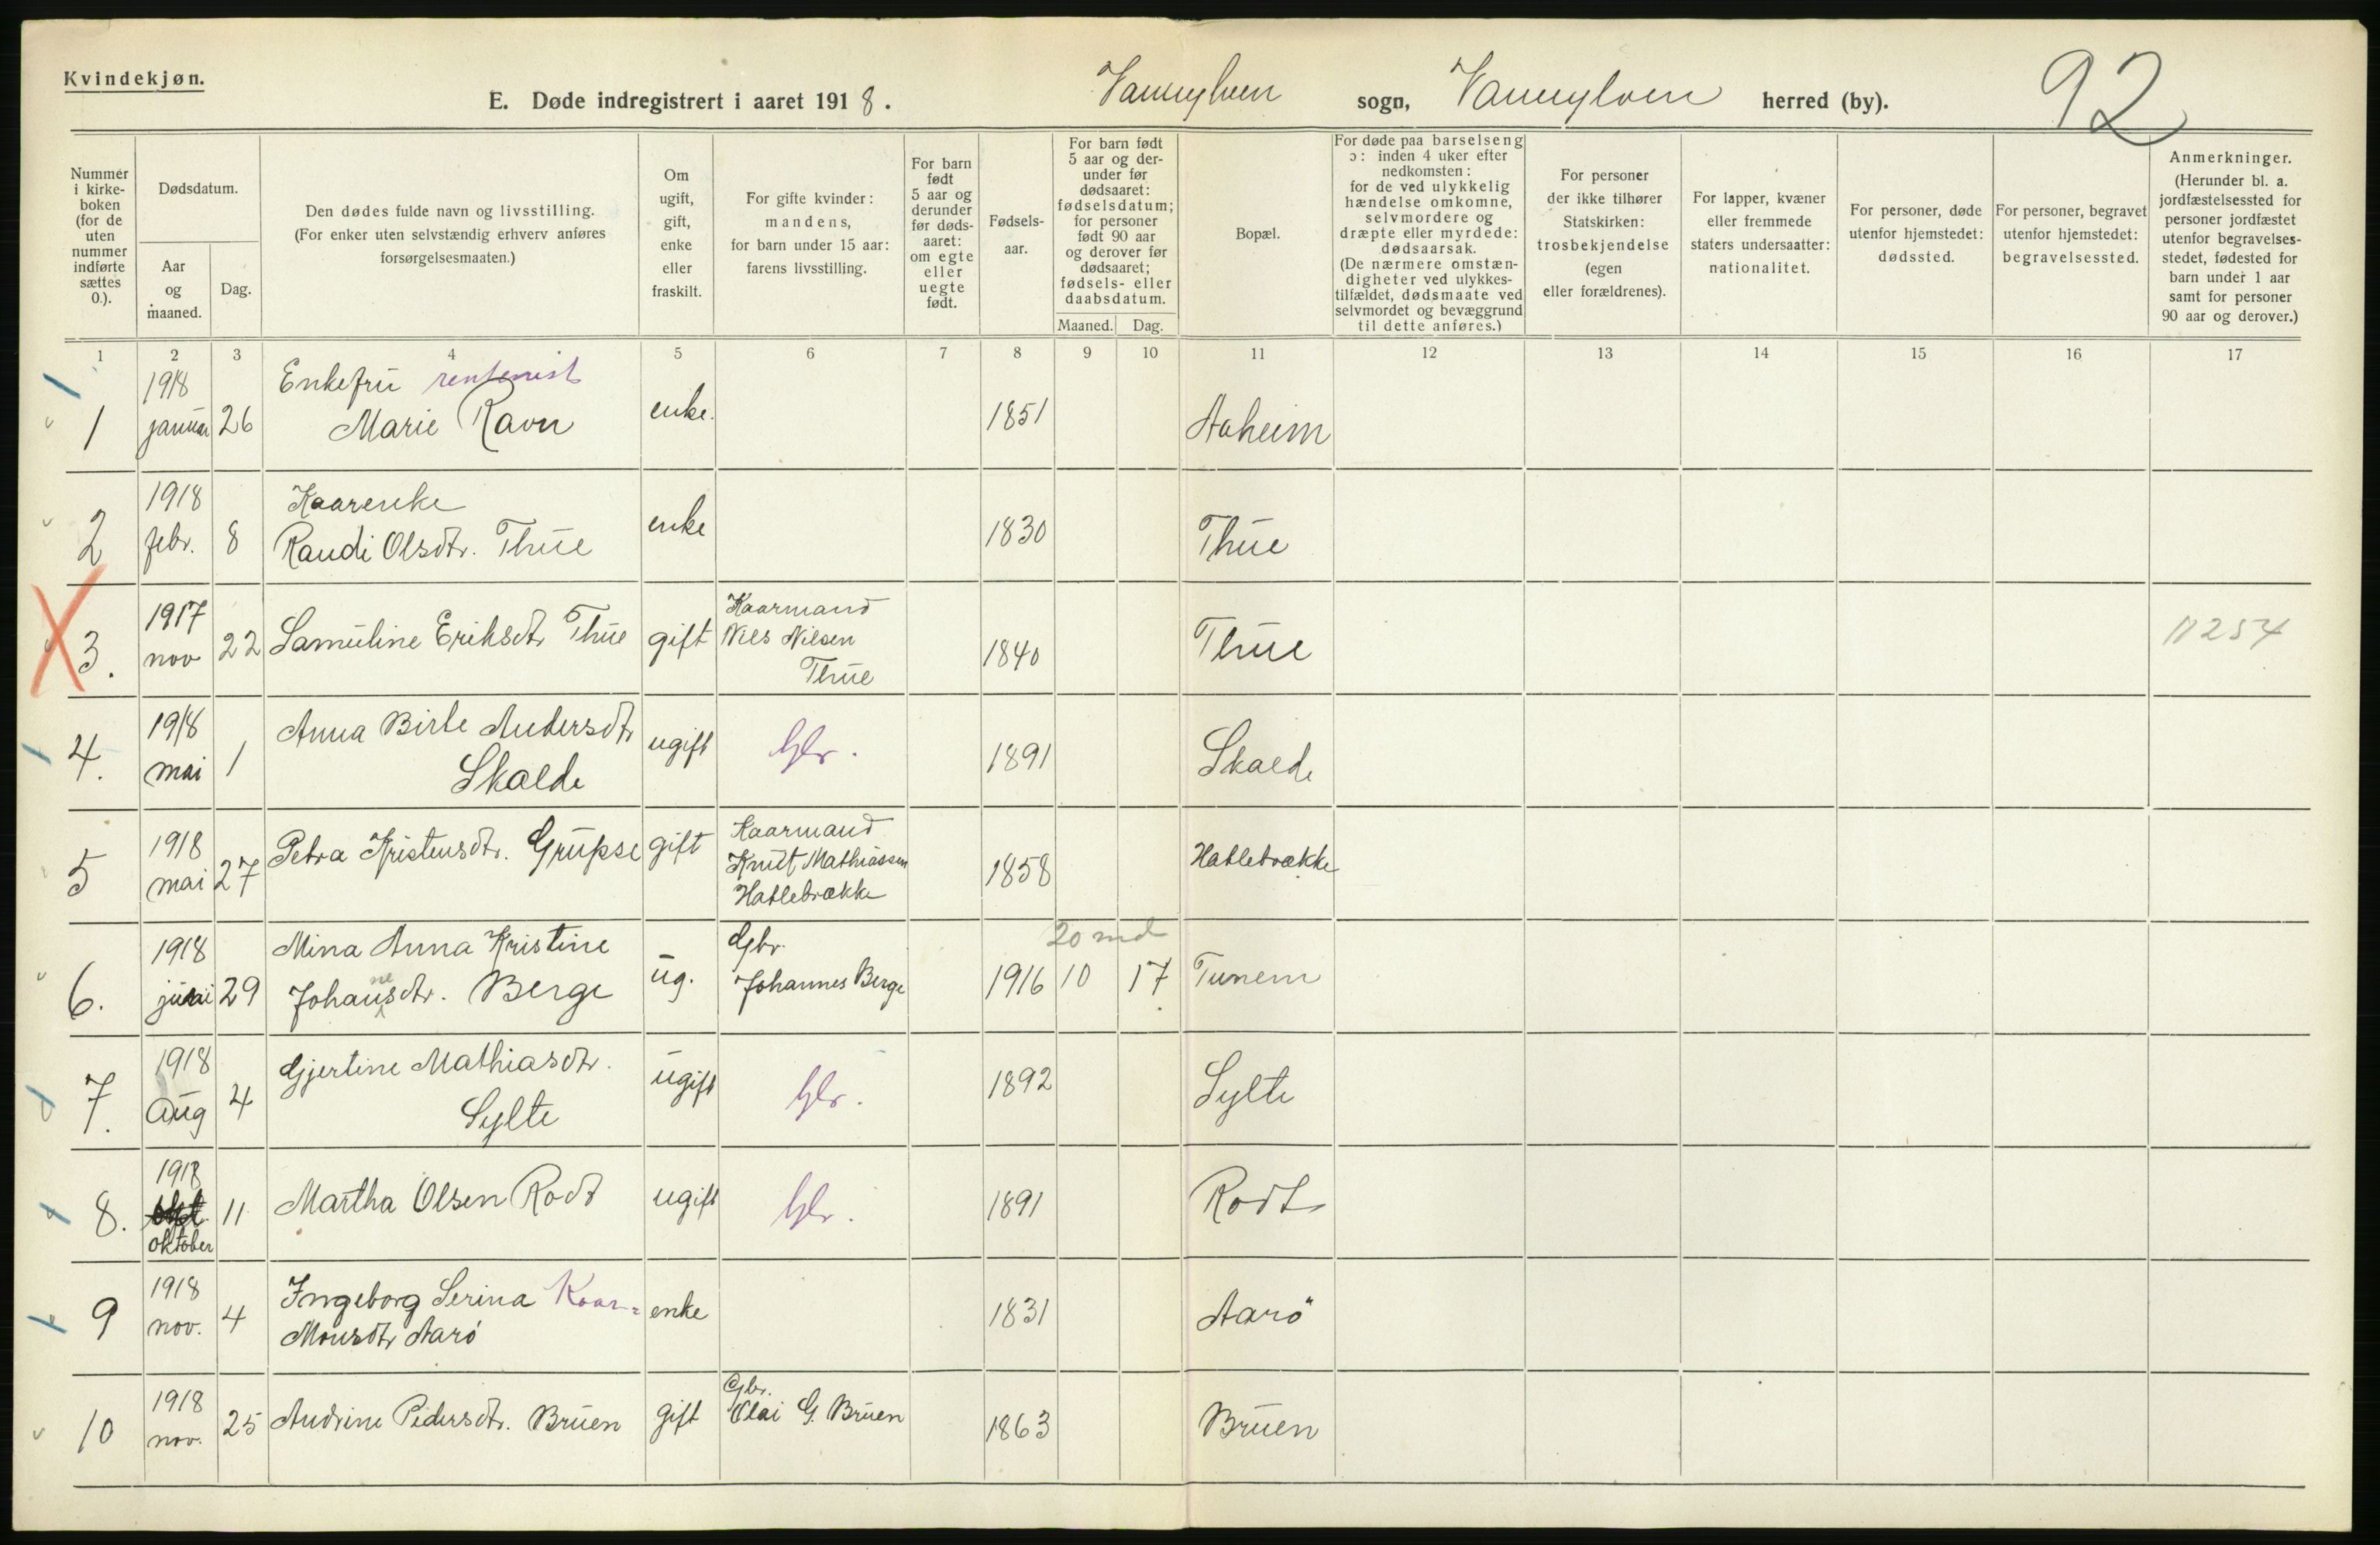 Kvindekjøn.
E. Døde indregistrert i aaret 1918. Vannylven sogn, Vannylven herred (by). 92
Nummer i kirke-boken (for de uten nummer indførte sættes 0.).
Dødsdatum.
Aar og maaned.
Dag.
Den dødes fulde navn og livsstilling.
(For enker uten selvstændig erhverv anføres forsørgelsesmaaten.)
Om ugift, gift, enke eller fraskilt.
For gifte kvinder: mandens, for barn under 15 aar: farens livsstilling.
For barn født 5 aar og derunder før døds-aaret: om egte eller uegte født.
Fødsels-aar.
For barn født 5 aar og der-under før dødsaaret: fødselsdatum; for personer født 90 aar og derover før dødsaaret; fødsels- eller daabsdatum.
Maaned. Dag.
Bopæl.
For døde paa barselseng ɔ: inden 4 uker efter nedkomsten: for de ved ulykkelig hændelse omkomne, selvmordere og dræpte eller myrdede: dødsaarsak. (De nærmere omstæn-digheter ved ulykkes-tilfældet, dødsmaate ved selvmordet og bevæggrund til dette anføres.)
For personer der ikke tilhører Statskirken: trosbekjendelse (egen eller forældrenes).
For lapper, kvæner eller fremmede staters undersaatter: nationalitet.
For personer, døde utenfor hjemstedet: dødssted.
For personer, begravet utenfor hjemstedet: begravelsessted.
Anmerkninger. (Herunder bl. a. jordfæstelsessted for personer jordfæstet utenfor begravelses-stedet, fødested for barn under 1 aar samt for personer 90 aar og derover.)
1 2 3 4 5 6 7 8 9 10 11 12 13 14 15 16 17
1 1918 januar 26 Enkefru rentenist Marie Ravn enke. 1851 Aaheim
2 1918 febr. 8 Kaarenke Raudi Olsdtr. Thue enke 1830 Thue
3. 1917 nov 22 Samuline Eriksdtr Thue gift Kaarmand Nils Nilsen Thue 1840 Thue 11254
4. 1918 mai 1 Anna Birte Andersdtr Skaede ugift Gbr. 1891 Skaede
5 1918 mai 27 Petra Kristensdtr. Grupse gift Kaarmand Knut Mathiassen Hatlebrække 1858 Hatlebrække
6. 1918 juni 29 Mina Anna Kristine Johannesdtr. Berge ug. Gbr. Johannes Berge 1916 10 17 20 md Tunem
7. 1918 Aug 4 Gjertine Mathiasdtr. Sylte ugift Gbr. 1892 Sylte
8. 1918 oktober 11 Martha Olsen Rodt ugift Gbr. 1891 Rodt
9 1918 nov. 4 Ingeborg Serina Kaar= Monsdtr Aarö enke 1831 Aarö
10 1918 nov. 25 Andrine Pedersdtr. Bruen gift Gbr. Olai G. Bruen 1863 Bruen